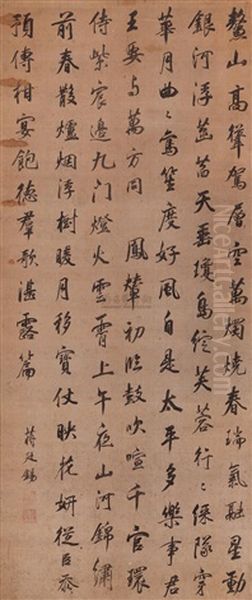 鰲山高聳駕層空萬燭燒春瑞氣融星動
銀河浮菡萏天垂瓊島綻芙蓉行〻綵隊穿
華月曲〻鸞笙度好風自是太平多樂事君
王要与萬方同 鳳輦初臨鼓吹喧千官環
侍紫宸邊九門燈火雲霄上午夜山河錦繡
前春散爐烟浮樹暖月移寶仗映花妍從臣忝
預傳柑宴飽德羣歌湛露篇
蔣廷錫